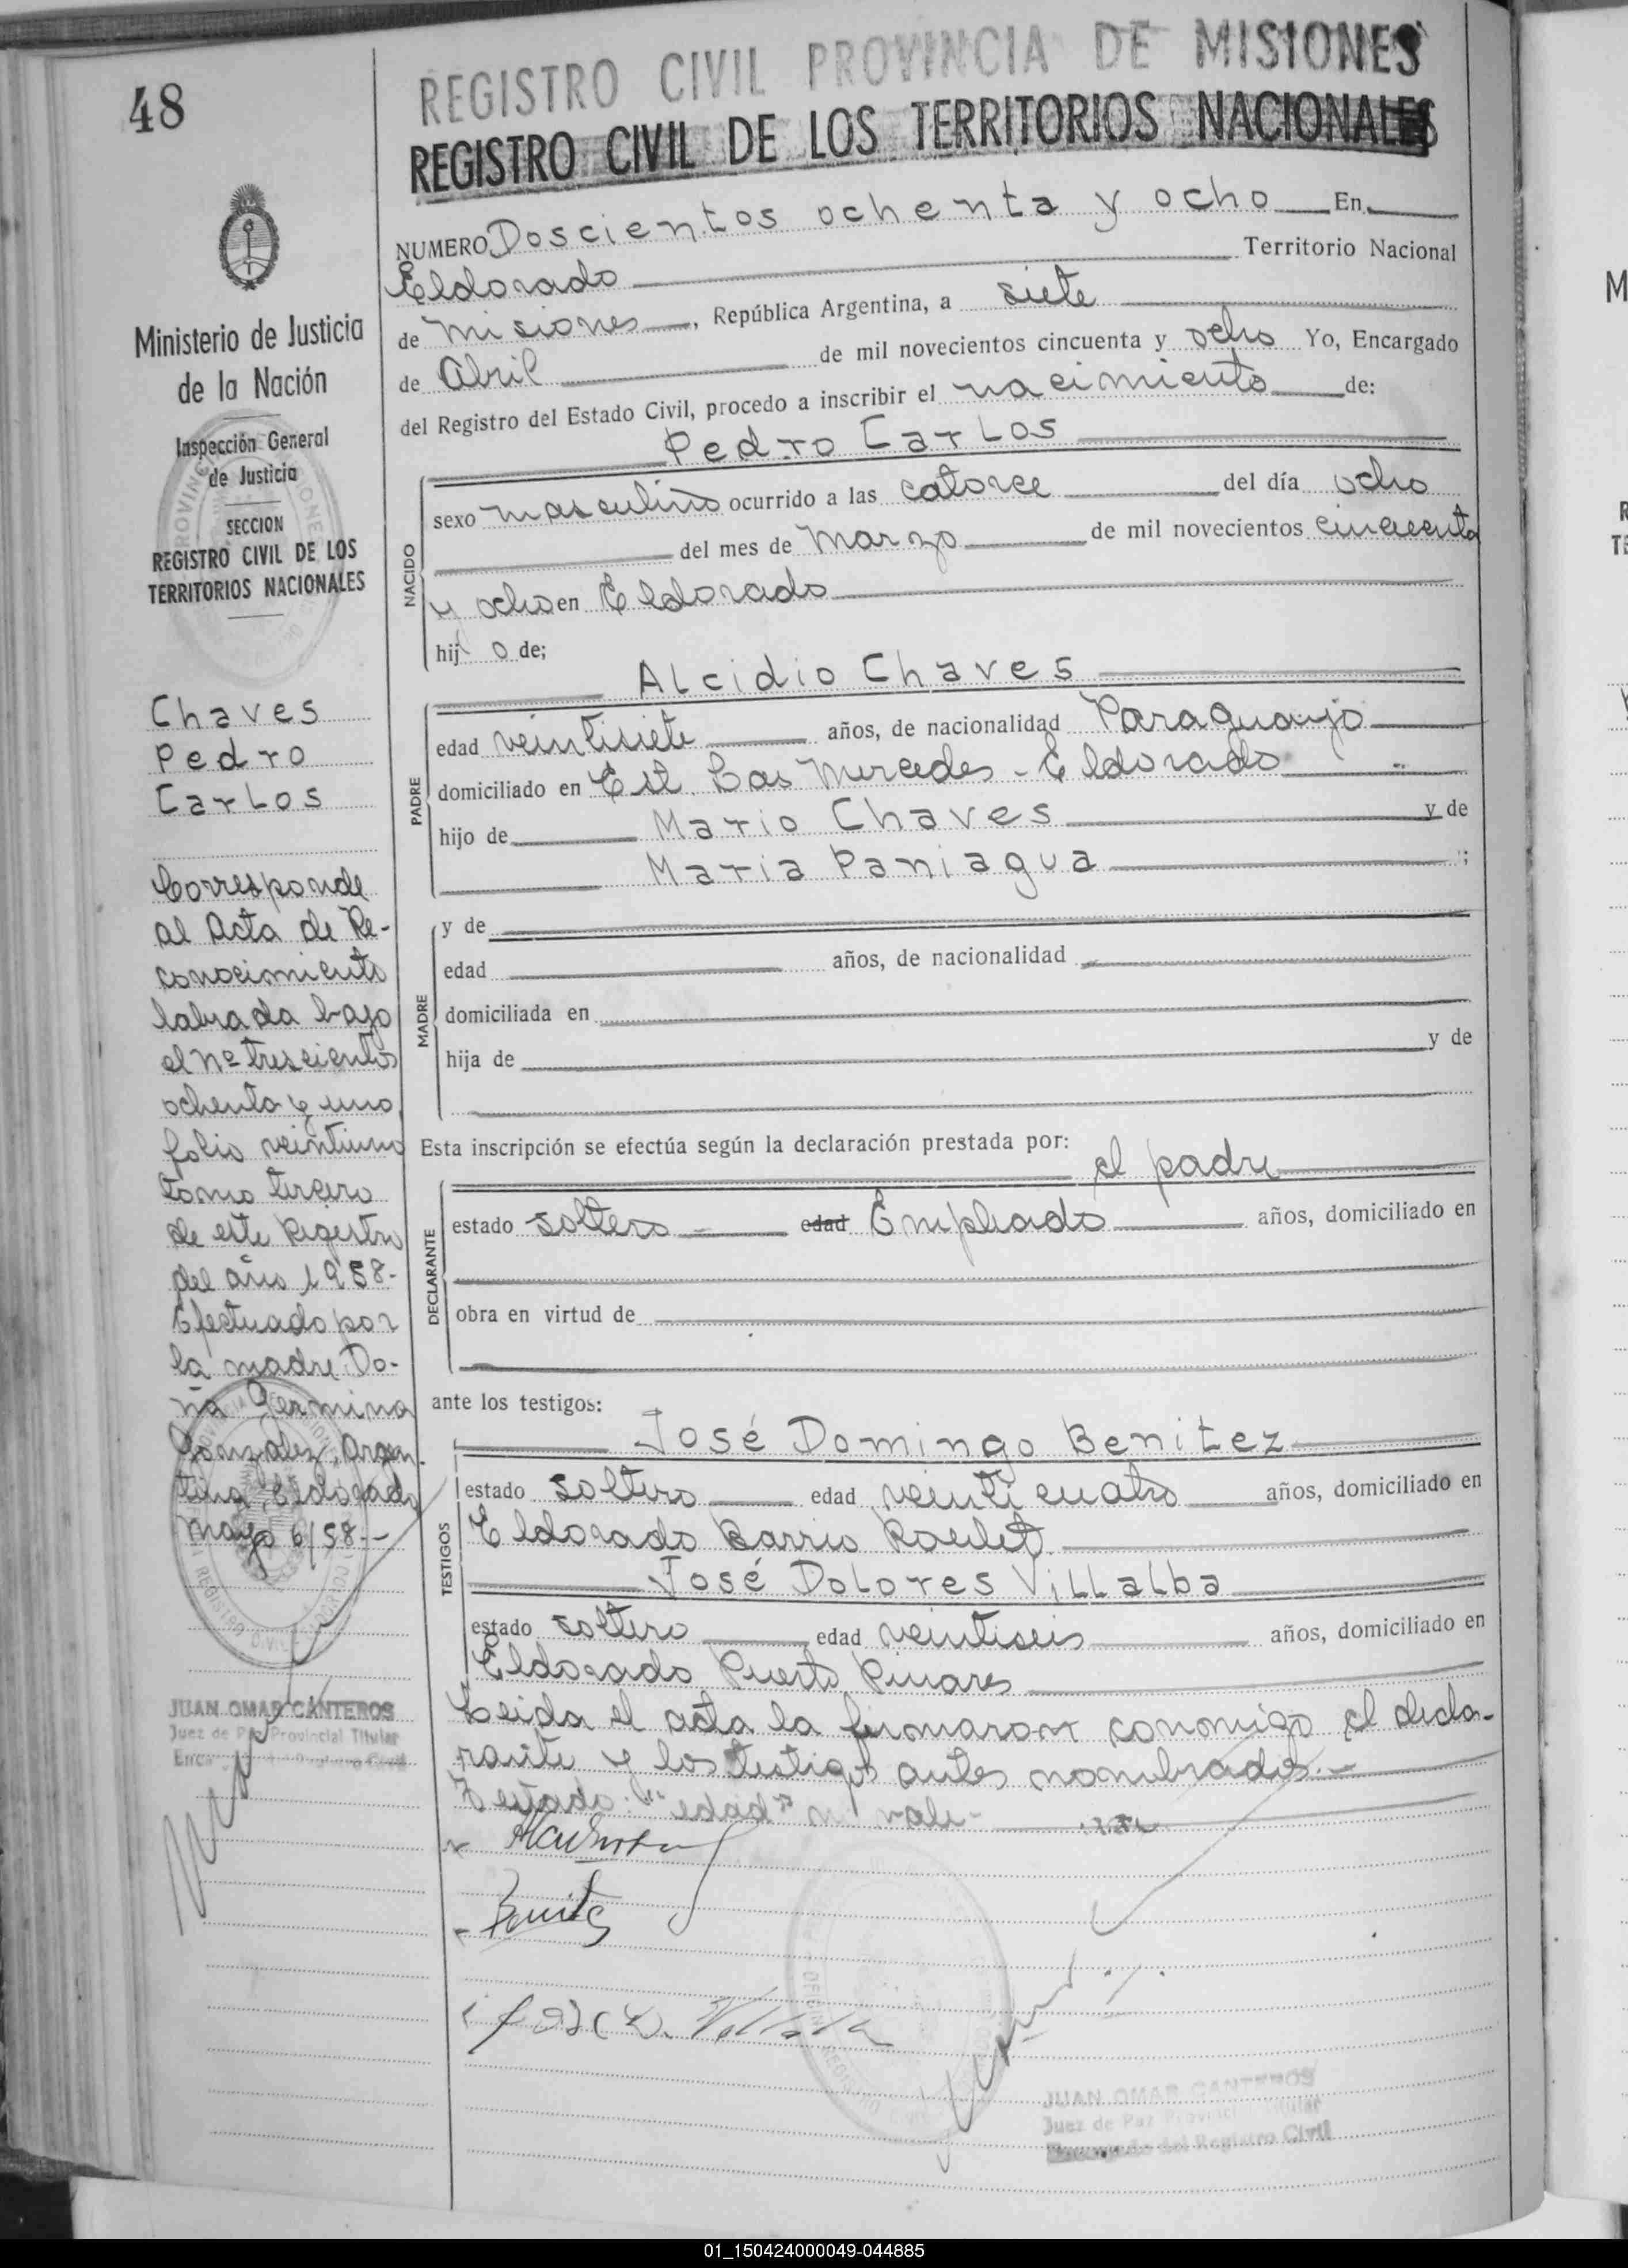 48
REGISTRO CIVIL PROVINCIA DE MISIONES
REGISTRO CIVIL DE LOS TERRITORIOS NACIONALES
Ministerio de Justicia
de la Nación
Inspección General
de Justicia
SECCION
REGISTRO CIVIL DE LOS
TERRITORIOS NACIONALES
Chaves
Pedro
Carlos
Corresponde
al Acta de Re-
conocimiento
labrada bajo
el Nº trescientos
ochenta y uno
folio veintiuno
tomo tercero
de este Registro
del año 1958.-
Efectuado por
la madre Do-
ña Germina
Gonzalez, Argen-
tina, Eldorado
mayo 6/58.-
JUAN OMAR CANTEROS
Juez de Paz Provincial Titular
NUMERO Doscientos ochenta y ocho En
Eldorado Territorio Nacional
de Misiones, República Argentina, a siete
de Abril de mil novecientos cincuenta y ocho Yo, Encargado
del Registro del Estado Civil, procedo a inscribir el nacimiento de:
Pedro Carlos
NACIDO
sexo masculino ocurrido a las catorce del día ocho
del mes de Marzo de mil novecientos cincuenta
y ocho en Eldorado
hijo de;
Alcidio Chaves
PADRE
edad veintisiete años, de nacionalidad Paraguayo
domiciliado en Est. Las Mercedes - Eldorado
hijo de Mario Chaves y de
Maria Paniagua ;
MADRE
y de
edad años, de nacionalidad
domiciliada en
hija de y de
Esta inscripción se efectúa según la declaración prestada por:
el padre
DECLARANTE
estado soltero edad Empleado años, domiciliado en
obra en virtud de
ante los testigos:
José Domingo Benitez
TESTIGOS
estado soltero edad veinticuatro años, domiciliado en
Eldorado Barrio Roulet
José Dolores Villalba
estado soltero edad veintiseis años, domiciliado en
Eldorado Puerto Pinares
Leida el acta la firmaron conmigo el decla-
rante y los testigos antes nombrados.-
Testado: "edad" no vale-
Benitez
José D. Villalba
JUAN OMAR CANTEROS
Juez de Paz Provincial Titular
Encargado del Registro Civil
01_150424000049-044885